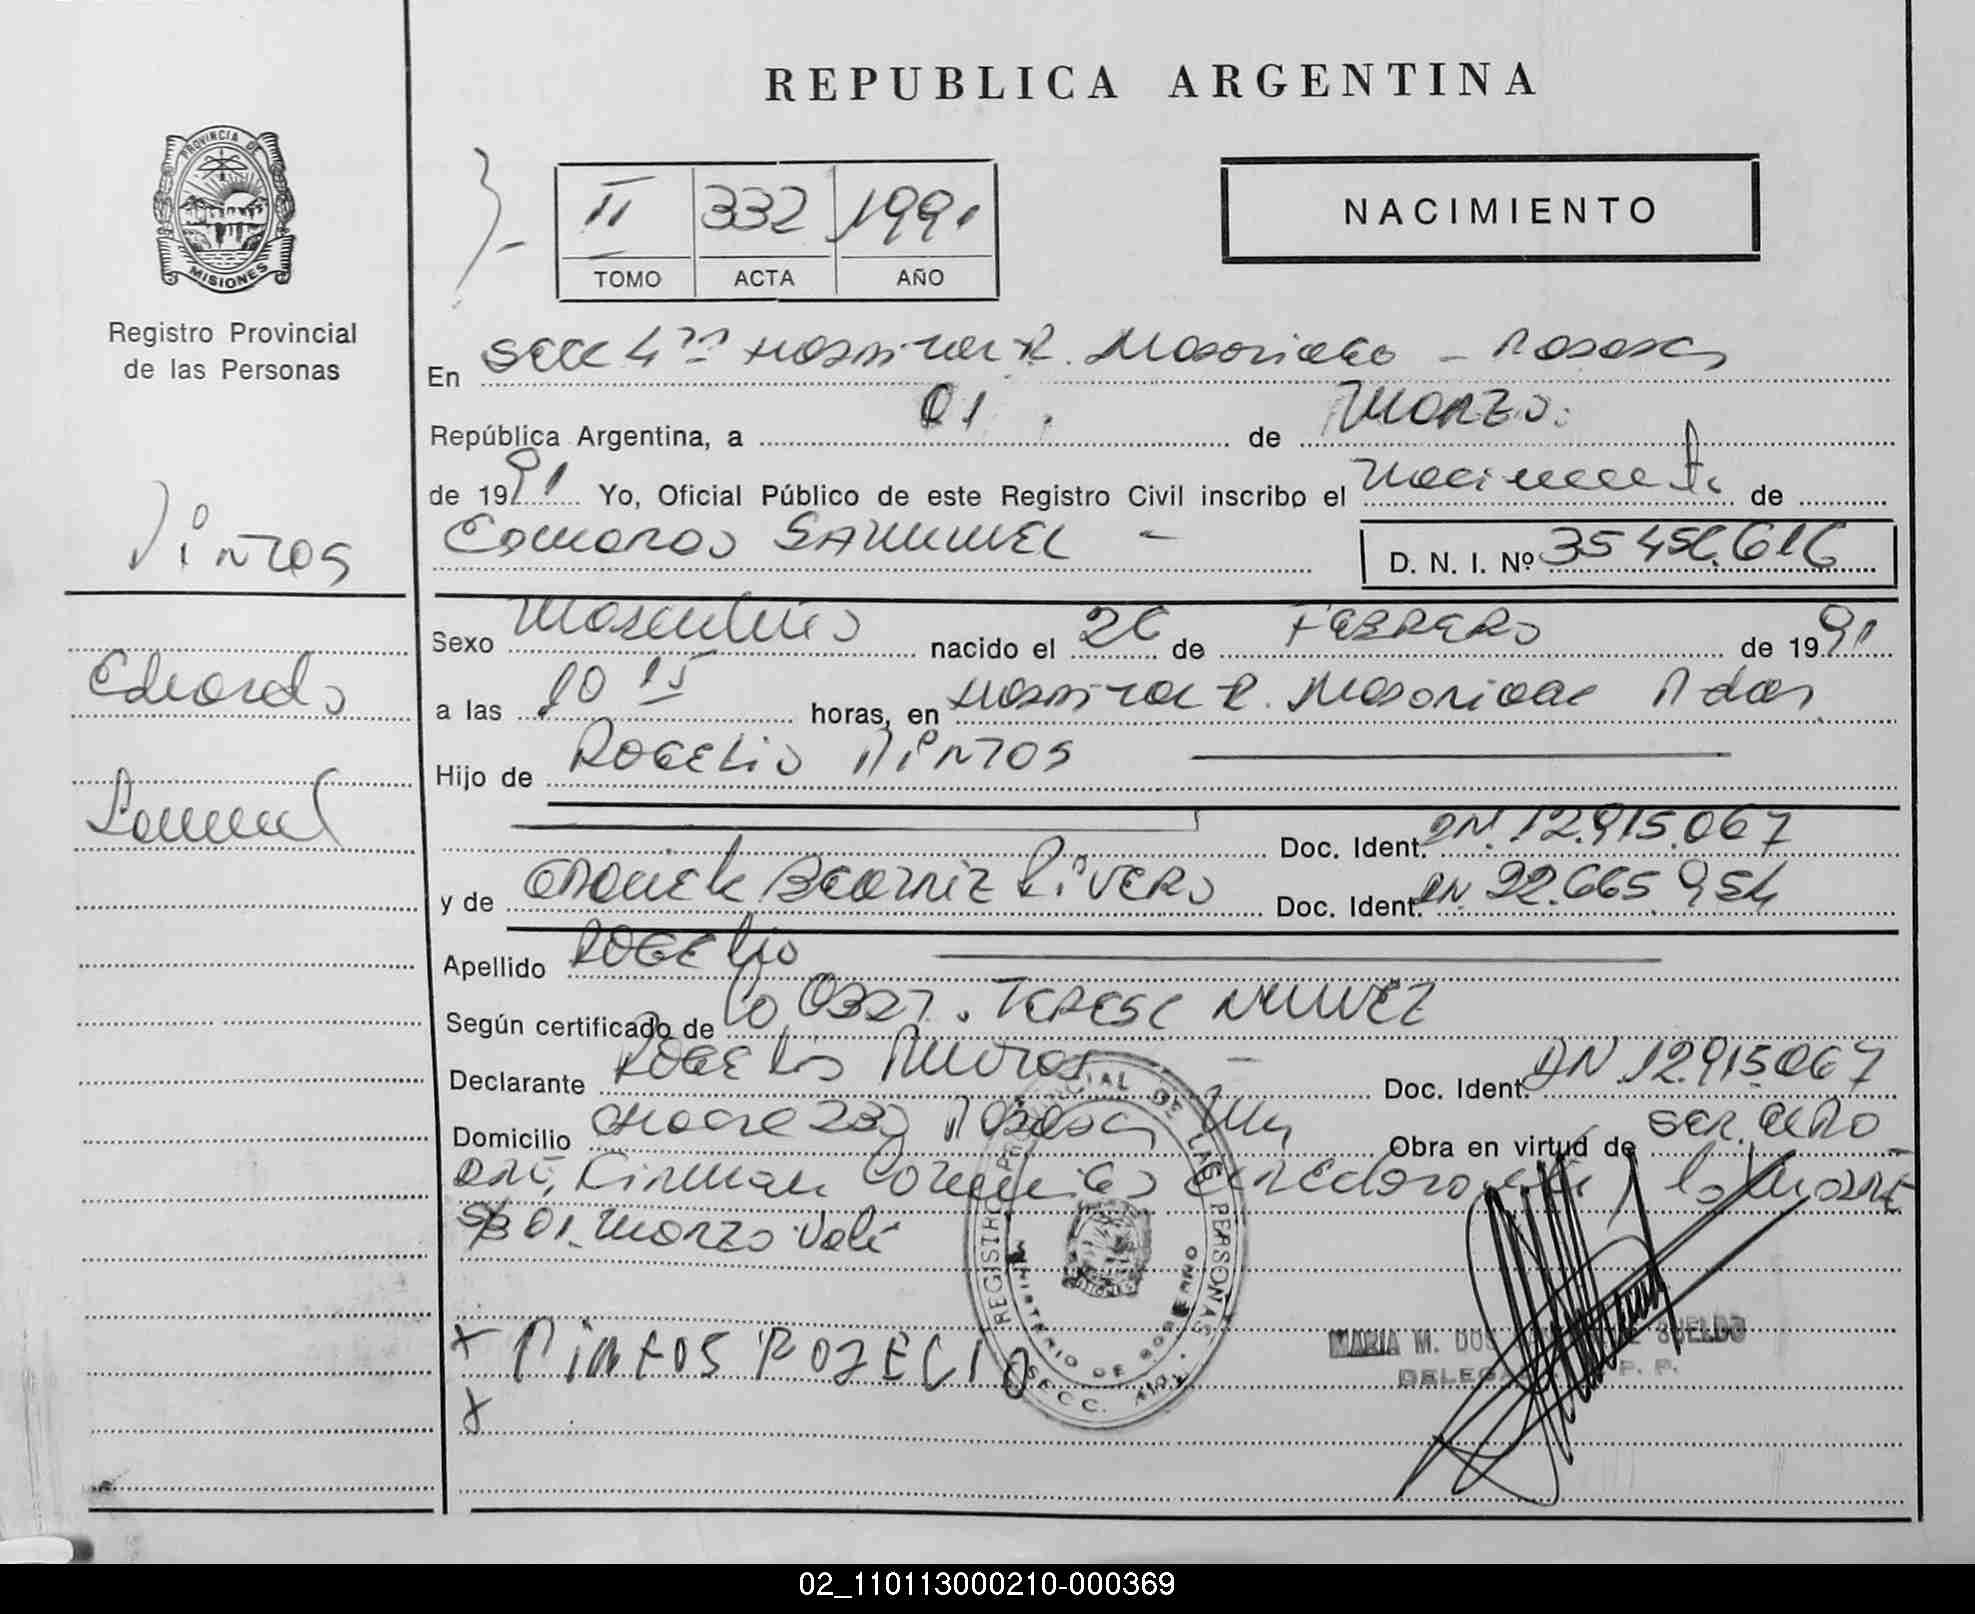 REPUBLICA ARGENTINA
PROVINCIA DE MISIONES
Registro Provincial
de las Personas
II 332 1991
TOMO ACTA AÑO
NACIMIENTO
En Secc 4ta Hospital R. Madariaga - Posadas
República Argentina, a 01 de Marzo
de 1991 Yo, Oficial Público de este Registro Civil inscribo el nacimiento de
Eduardo SAMUEL - D. N. I. Nº 35.456.616
Pintos
Eduardo
Samuel
Sexo Masculino nacido el 26 de FEBRERO de 1991
a las 10 15 horas, en Hospital R. Madariaga Pdas
Hijo de ROGELIO PINTOS
Doc. Ident. DN. 12.915.067
y de Beatriz Rivero Doc. Ident. DN. 22.665.954
Apellido ROGELIO
Según certificado de 0327. TERESA NUÑEZ
Declarante ROGELIO Pintos - Doc. Ident. DN 12.915.067
Domicilio Posadas Mns Obra en virtud de ser
01 Marzo Vale
REGISTRO PROVINCIAL DE LAS PERSONAS
MINISTERIO DE GOBIERNO
SECC.
x PINTOS ROJELIO
x
MARIA M. DOS SUELDO
02_110113000210-000369